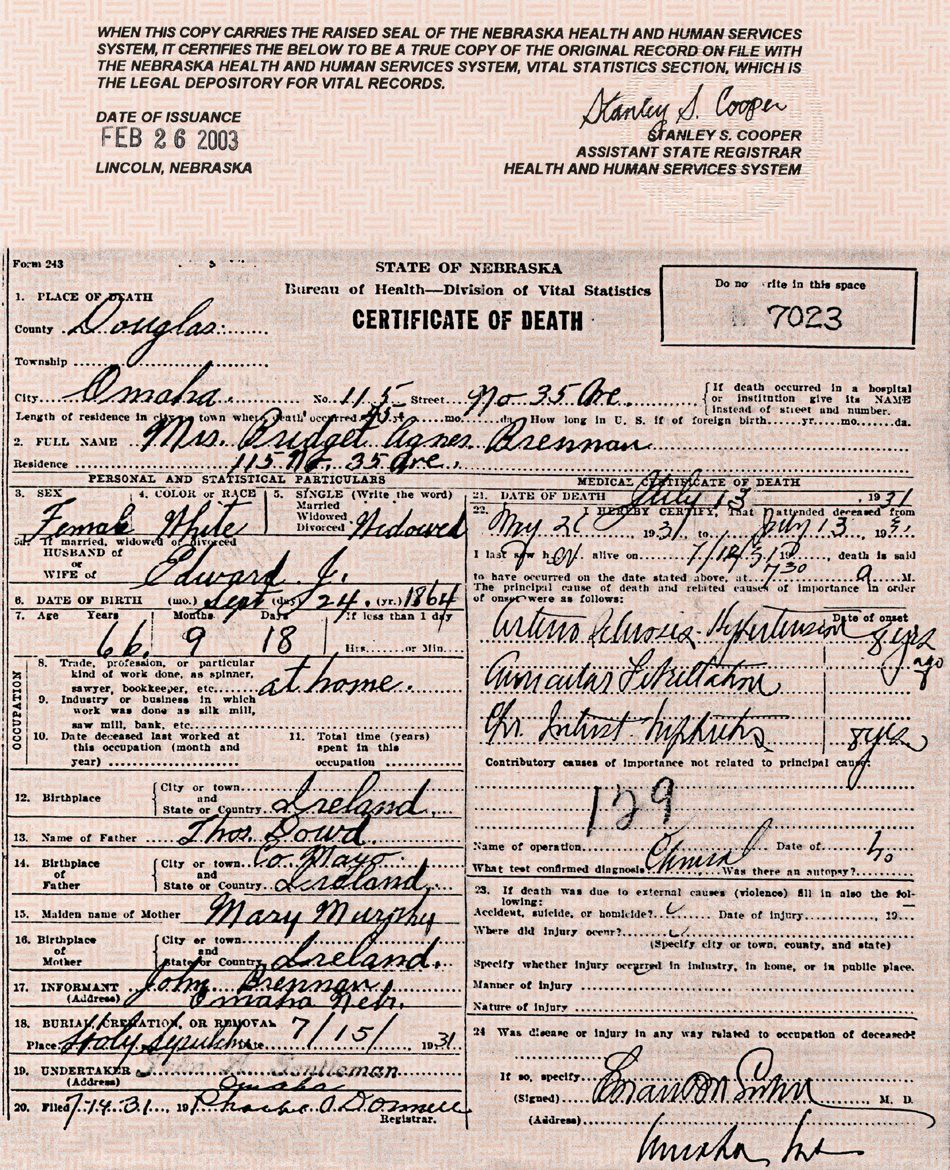 WHEN THIS COPY CARRIES THE RAISED SEAL OF THE NEBRASKA HEALTH AND HUMAN SERVICES
SYSTEM, IT CERTIFIES THE BELOW TO BE A TRUE COPY OF THE ORIGINAL RECORD ON FILE WITH
THE NEBRASKA HEALTH AND HUMAN SERVICES SYSTEM, VITAL STATISTICS SECTION, WHICH IS
THE LEGAL DEPOSITORY FOR VITAL RECORDS.
DATE OF ISSUANCE
FEB 26 2003
LINCOLN, NEBRASKA
Stanley S. Cooper
STANLEY S. COOPER
ASSISTANT STATE REGISTRAR
HEALTH AND HUMAN SERVICES SYSTEM
Form 243
STATE OF NEBRASKA
Bureau of Health—Division of Vital Statistics
CERTIFICATE OF DEATH
Do no rite in this space
7023
1. PLACE OF DEATH
County Douglas
Township
City Omaha No. 115 Street No 35 Ave.
{If death occurred in a hospital
or institution give its NAME
instead of street and number.
Length of residence in city or town where death occurred yrs. mo. da. How long in U. S. if of foreign birth yr. mo. da.
2. FULL NAME Mrs. Bridget Agnes Brennan
Residence 115 No. 35 Ave.
PERSONAL AND STATISTICAL PARTICULARS
3. SEX Female
4. COLOR or RACE White
5. SINGLE (Write the word)
Married
Widowed
Divorced
Widowed
5a. If married, widowed or divorced
HUSBAND of
or
WIFE of Edward J.
6. DATE OF BIRTH (mo.) Sept (day) 24. (yr.) 1864
7. Age Years Months Days If less than 1 day
66 9 18 Hrs. or Min.
OCCUPATION
8. Trade, profession, or particular
kind of work done, as spinner,
sawyer, bookkeeper, etc. at home.
9. Industry or business in which
work was done as silk mill,
saw mill, bank, etc.
10. Date deceased last worked at
this occupation (month and
year)
11. Total time (years)
spent in this
occupation
12. Birthplace {City or town
and
State or Country Ireland
13. Name of Father Thos. Dowd
14. Birthplace
of
Father
{City or town Co. Mayo
and
State or Country Ireland
15. Maiden name of Mother Mary Murphy
16. Birthplace
of
Mother
{City or town
and
State or Country Ireland.
17. INFORMANT John Brennan
(Address) Omaha Nebr.
18. BURIAL, CREMATION, OR REMOVAL
Place Holy Sepulchre Date 7/15/ 1931
19. UNDERTAKER Gentleman
(Address) Omaha
20. Filed 7-14-31, 19 Phoebe O'Donnell
Registrar.
MEDICAL CERTIFICATE OF DEATH
21. DATE OF DEATH July 13, 1931
22. I HEREBY CERTIFY, That I attended deceased from
May 21 1931 to July 13 1931
I last saw her alive on 7/12/31 19 death is said
to have occurred on the date stated above, at 7:30 a M.
The principal cause of death and related causes of importance in order
of onset were as follows:
Date of onset
Arterio Sclerosis - Hypertension 8 yrs ago
Auricular Fibrillation
Chr. Interst. Nephritis 8 yrs
Contributory causes of importance not related to principal cause:
129
Name of operation Date of
What test confirmed diagnosis Clinical Was there an autopsy? No
23. If death was due to external causes (violence) fill in also the fol-
lowing:
Accident, suicide, or homicide? Date of injury 19
Where did injury occur?
(Specify city or town, county, and state)
Specify whether injury occurred in industry, in home, or in public place.
Manner of injury
Nature of injury
24 Was disease or injury in any way related to occupation of deceased?
If so, specify
(Signed) M. D.
(Address) Omaha